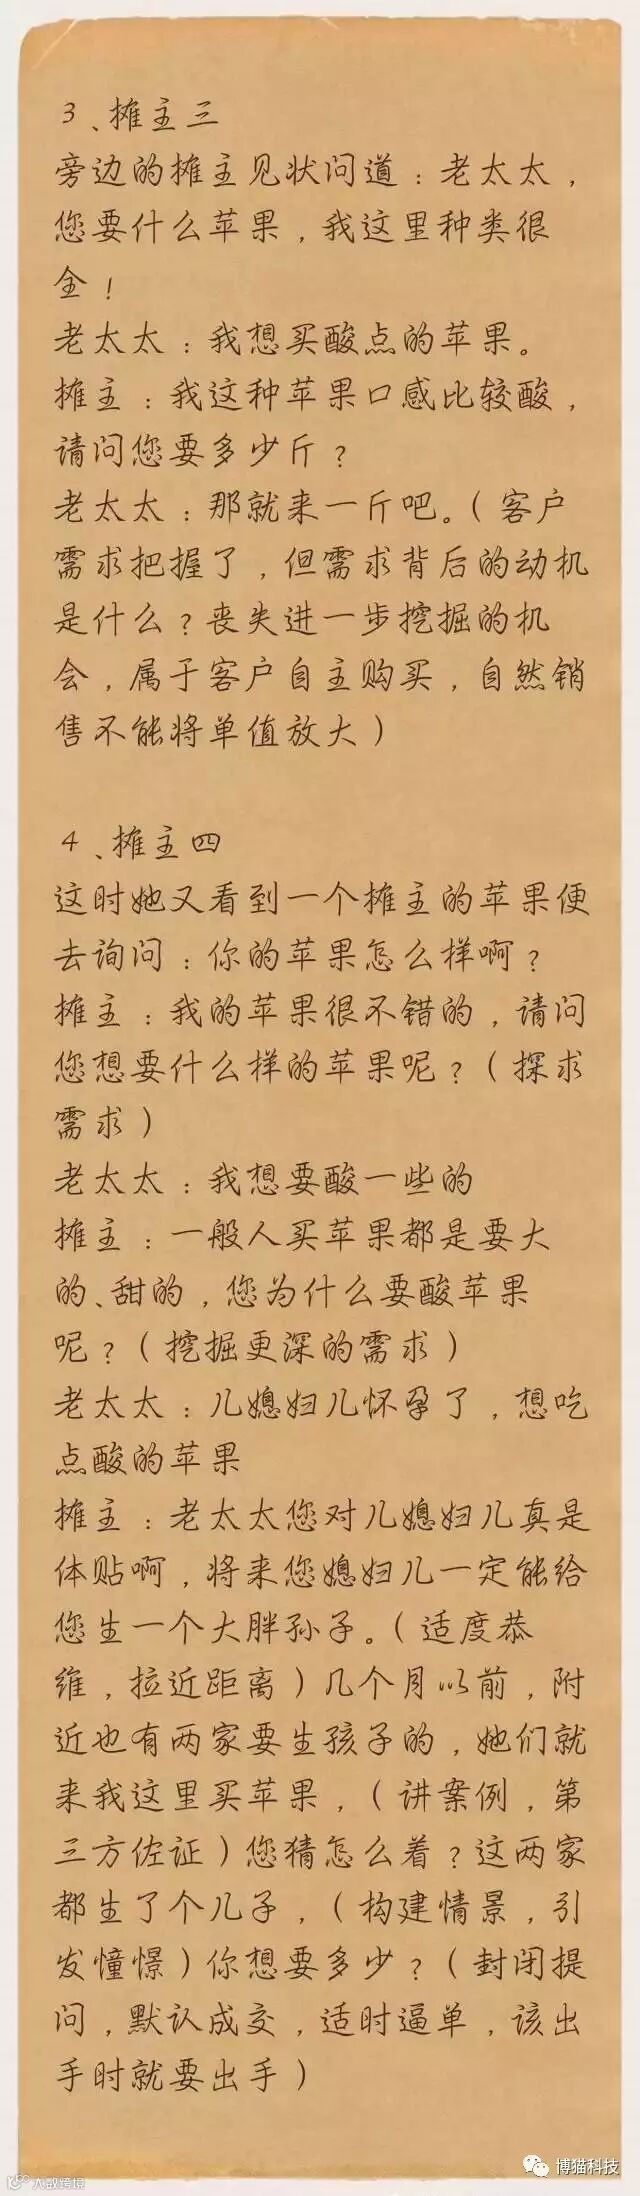 3、摊主三
旁边的摊主见状问道：老太太，
您要什么苹果，我这里种类很
全！
老太太：我想买酸点的苹果。
摊主：我这种苹果口感比较酸，
请问您要多少斤？
老太太：那就来一斤吧。（客户
需求把握了，但需求背后的动机
是什么？丧失进一步挖掘的机
会，属于客户自主购买，自然销
售不能将单值放大）
4、摊主四
这时她又看到一个摊主的苹果便
去询问：你的苹果怎么样啊？
摊主：我的苹果很不错的，请问
您想要什么样的苹果呢？（探求
需求）
老太太：我想要酸一些的
摊主：一般人买苹果都是要大
的、甜的，您为什么要酸苹果
呢？（挖掘更深的需求）
老太太：儿媳妇儿怀孕了，想吃
点酸的苹果
摊主：老太太您对儿媳妇儿真是
体贴啊，将来您媳妇儿一定能给
您生一个大胖孙子。（适度恭
维，拉近距离）几个月以前，附
近也有两家要生孩子的，她们就
来我这里买苹果，（讲案例，第
三方佐证）您猜怎么着？这两家
都生了个儿子，（构建情景，引
发憧憬）你想要多少？（封闭提
问，默认成交，适时逼单，该出
手时就要出手）
博猫科技
大数跨境